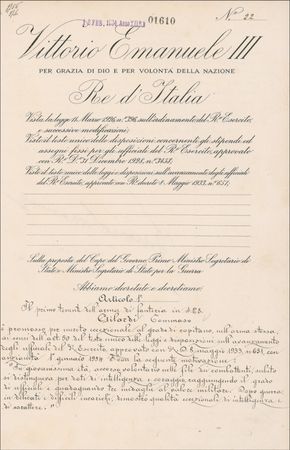 N.° 22
01610
Vittorio Emanuele III
PER GRAZIA DI DIO E PER VOLONTÀ DELLA NAZIONE
Re d'Italia
Vista la legge 11 Marzo 1926, n° 396, sull'ordinamento del R.° Esercito,
e successive modificazioni;
Visto il testo unico delle disposizioni concernenti gli stipendi ed
assegni fissi per gli ufficiali del R.° Esercito, approvato
con R.° D.° 31 Dicembre 1928, n° 3458;
Visto il testo unico delle leggi e disposizioni sull'avanzamento degli ufficiali
del R.° Esercito, approvato con R.° decreto 8 Maggio 1933, n° 651;
Sulla proposta del Capo del Governo, Primo Ministro Segretario di
Stato e Ministro Segretario di Stato per la Guerra
Abbiamo decretato e decretiamo:
Articolo 1°
Il primo tenente dell'arma di fanteria in
Cilardi Tommaso
è promosso per merito eccezionale al grado di capitano, nell'arma stessa,
ai sensi dell'art 50 del testo unico delle leggi e disposizioni sull'avanzamento
degli ufficiali del R.° Esercito approvato con R. D. 8 maggio 1933, n° 651, con
anzianità 1° gennaio 1934 con la seguente motivazione:
"In giovanissima età, accorso volontario nelle file dei combattenti, subito
si distingueva per doti di intelligenza e coraggio, raggiungendo il grado
di ufficiale e guadagnando tre medaglie al valore militare. Dopo guerra
in delicati e difficili incarichi, dimostrò qualità eccezionali di intelligenza e
di carattere,"